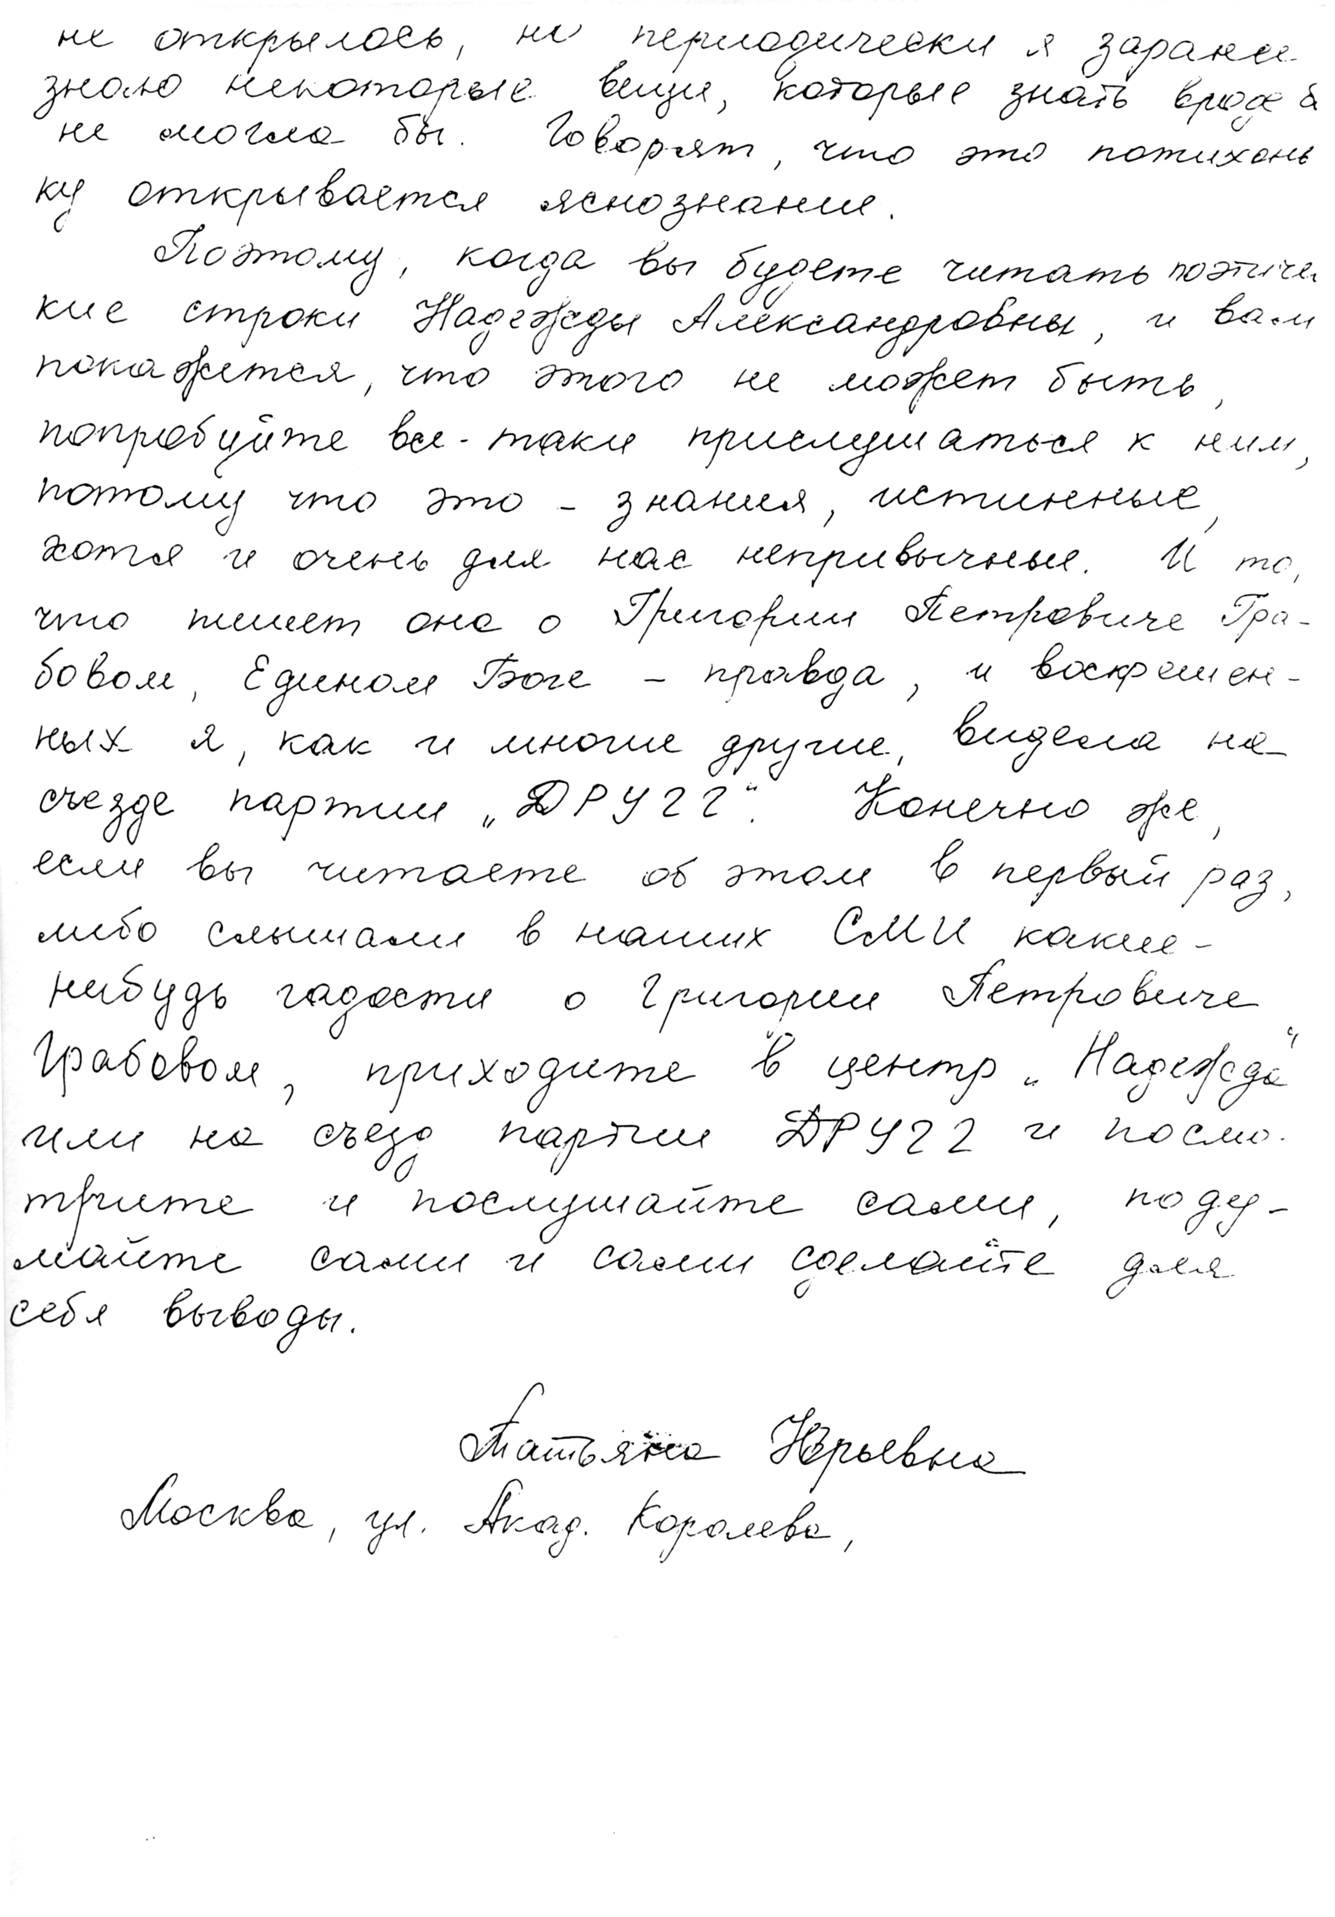 не открылось, но периодически я заранее
знаю некоторые вещи, которые знать вроде б
не могла бы. Говорят, что это потихонь
ку открывается яснознание.
Поэтому, когда вы будете читать поэтичес
кие строки Надежды Александровны, и вам
покажется, что этого не может быть,
попробуйте все-таки прислушаться к ним,
потому что это – знания, истинные,
хотя и очень для нас непривычные. И то,
что пишет она о Григории Петровиче Гра-
бовом, Едином Боге – правда, и воскрешен-
ных я, как и многие другие, видела на
съезде партии „ДРУГГ“. Конечно же,
если вы читаете об этом в первый раз,
либо слышали в наших СМИ какие-
нибудь гадости о Григории Петровиче
Грабовом, приходите в центр „Надежда“
или на съезд партии ДРУГГ и посмо-
трите и послушайте сами, поду-
майте сами и сами сделайте для
себя выводы.
Татьяна Юрьевна
Москва, ул. Акад. Королева,